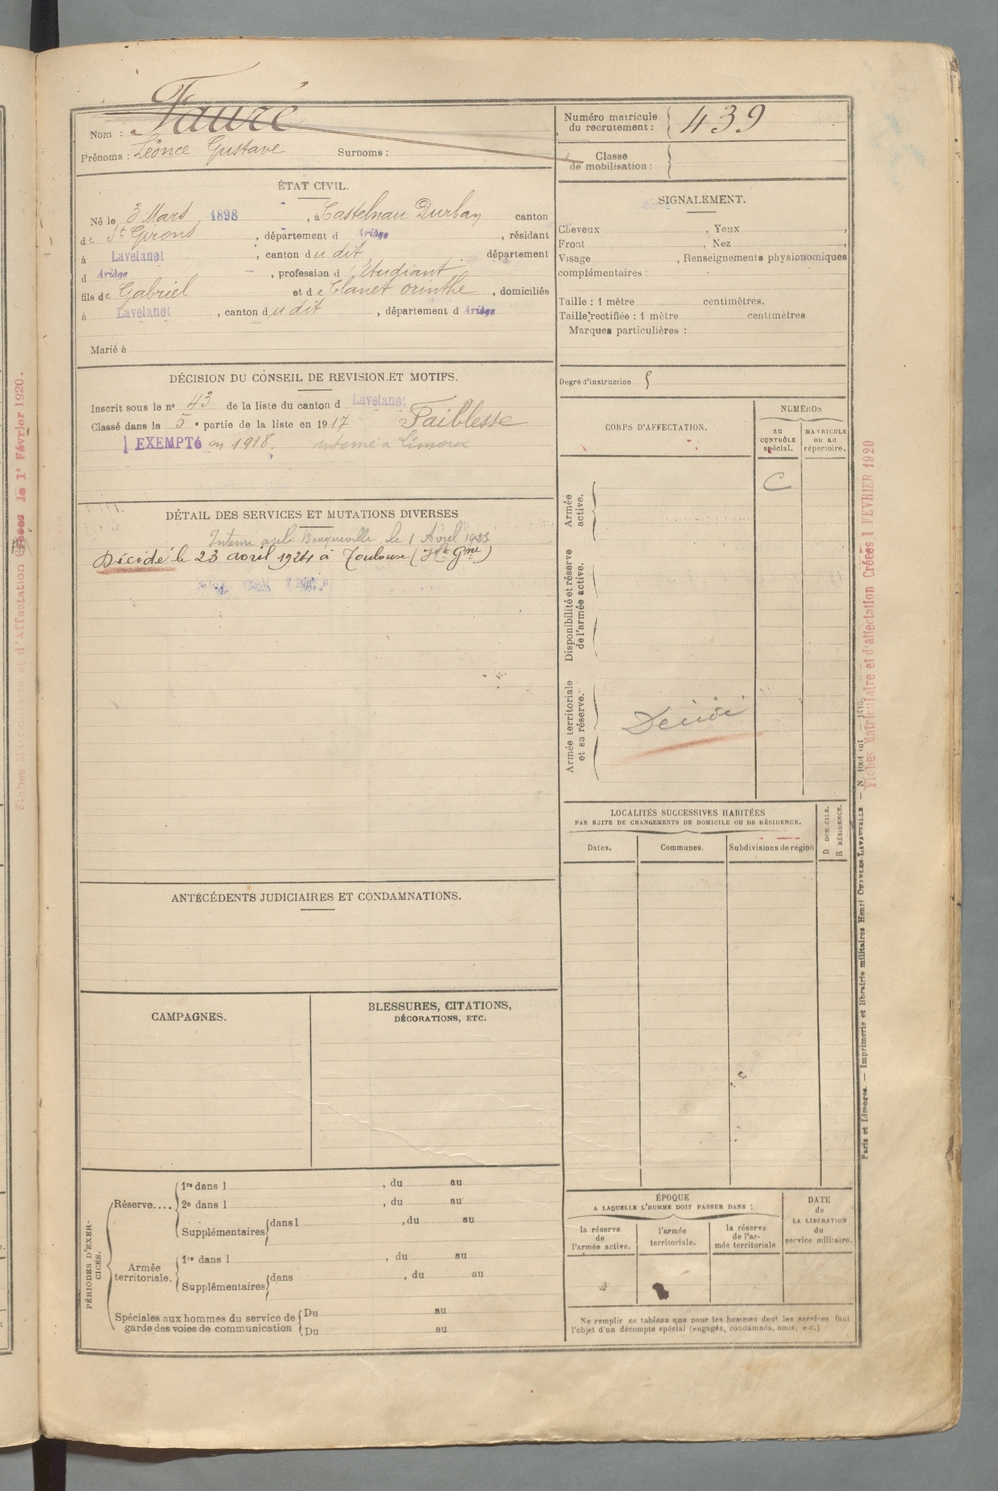 Nom : Fauré
Prénoms : Léonce Gustave Surnoms :
Numéro matricule
du recrutement : 439
Classe
de mobilisation :
ÉTAT CIVIL.
Né le 3 Mars 1898, à Castelnau Durban canton
de St Girons, département d Ariège, résidant
à Lavelanet, canton dudit département
d Ariège, profession d'Etudiant
fils de Gabriel et de Clanet, domiciliés
à Lavelanet, canton dudit, département d Ariège
Marié à
SIGNALEMENT.
Cheveux , Yeux ,
Front , Nez ,
Visage , Renseignements physionomiques
complémentaires :
Taille : 1 mètre centimètres.
Taille rectifiée : 1 mètre centimètres
Marques particulières :
Degré d'instruction
DÉCISION DU CONSEIL DE REVISION ET MOTIFS.
Inscrit sous le n° 43 de la liste du canton d Lavelanet
Classé dans la 5e partie de la liste en 1917 Faiblesse
EXEMPTÉ en 1918. interné à Limoux
DÉTAIL DES SERVICES ET MUTATIONS DIVERSES
Interné asile Braqueville le 1 Avril 1923
Décédé le 23 avril 1924 à Toulouse (Hte Gne)
CORPS D'AFFECTATION.
NUMÉROS
AU
CONTRÔLE
spécial.
MATRICULE
OU AU
répertoire.
C
Armée
active.
Disponibilité et réserve
de l'armée active.
Armée territoriale
et sa réserve.
Décédé
LOCALITÉS SUCCESSIVES HABITÉES
PAR SUITE DE CHANGEMENTS DE DOMICILE OU DE RÉSIDENCE.
Dates. Communes. Subdivisions de région
D DOMICILE.
R RÉSIDENCE.
ANTÉCÉDENTS JUDICIAIRES ET CONDAMNATIONS.
CAMPAGNES.
BLESSURES, CITATIONS,
DÉCORATIONS, ETC.
PÉRIODES D'EXER-
CICES.
Réserve....
1re dans l , du au
2e dans l , du au
Supplémentaires dans l , du au
Armée
territoriale.
1re dans l , du au
Supplémentaires dans , du au
Spéciales aux hommes du service de
garde des voies de communication
Du au
Du au
ÉPOQUE
A LAQUELLE L'HOMME DOIT PASSER DANS :
la réserve
de
l'armée active.
l'armée
territoriale.
la réserve
de l'ar-
mée territoriale
DATE
de
LA LIBÉRATION
du
service militaire.
Ne remplir ce tableau que pour les hommes dont les services font
l'objet d'un décompte spécial (engagés, condamnés, omis, etc.)
Fiches Matriculaire et d'affectation Créées 1 FEVRIER 1920
Paris et Limoges. — Imprimerie et librairie militaires Henri CHARLES-LAVAUZELLE
le 1er Février 1920.